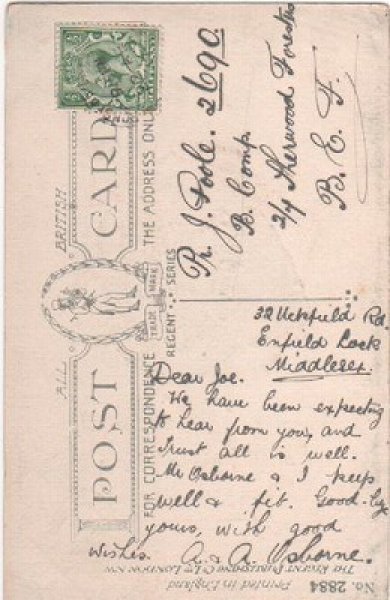 ALL BRITISH
POST CARD
TRADE MARK
REGENT SERIES
FOR CORRESPONDENCE
THE ADDRESS ONLY
Pr J. Poole. 2690.
B. Comp.
2/7 Sherwood Foresters
B. E. F.
32 Uckfield Rd
Enfield Lock
Middlesex.
Dear Joe.
We have been expecting
to hear from you, and
trust all is well.
Mr Osborne & I keep
well & fit. Good-by
yours, with good
wishes. A. & A. Osborne.
THE REGENT PUBLISHING Co Ltd LONDON NW
Printed in England
No. 2884